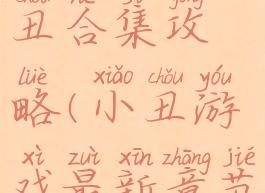 chǒu hé jí gōng
丑合集攻
lüè xiǎo chǒu yóu
略(小丑游
xì zuì xīn zhāng jié
戏最新章节